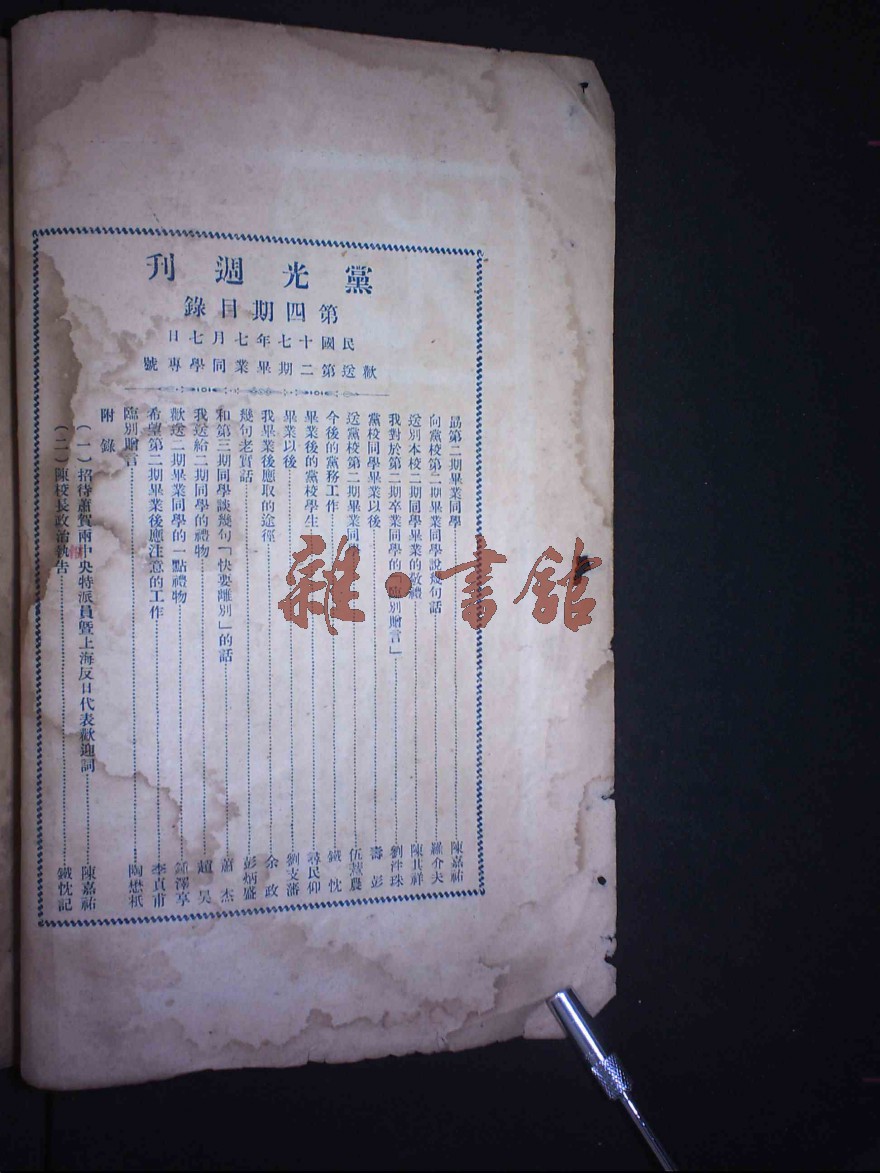 黨光週刊
第四期目錄
民國十七年七月七日
歡送第二期畢業同學專號
勗第二期畢業同學 陳嘉祐
向黨校第二期畢業同學說幾句話 羅介夫
送別本校二期同學畢業的敬禮 陳其祥
我對於第二期卒業同學的「臨別贈言」 劉泮珠
黨校同學畢業以後 壽彭
送黨校第二期畢業同學 伍農
今後的黨務工作 鐵忱
畢業後的黨校學生 尋民仰
畢業以後 劉支藩
我畢業後應取的途徑 余政
幾句老實話 彭炳盛
和第三期同學談幾句「快要離別」的話 蕭杰
我送給二期同學的禮物 趙昊
歡送二期畢業同學的一點禮物 鍾澤享
希望第二期畢業後應注意的工作 李貞甫
臨別贈言 陶懋祇
附錄
(一)招待蕭賀兩中央特派員暨上海反日代表歡迎詞 陳嘉祐
(二)陳校長政治報告 鐵忱記
雜·書館